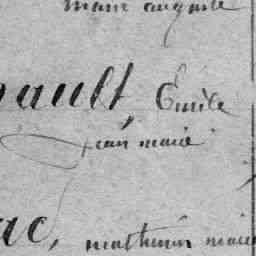 marie auguste
ault, Émile
jean marie
ac, mathurin marie